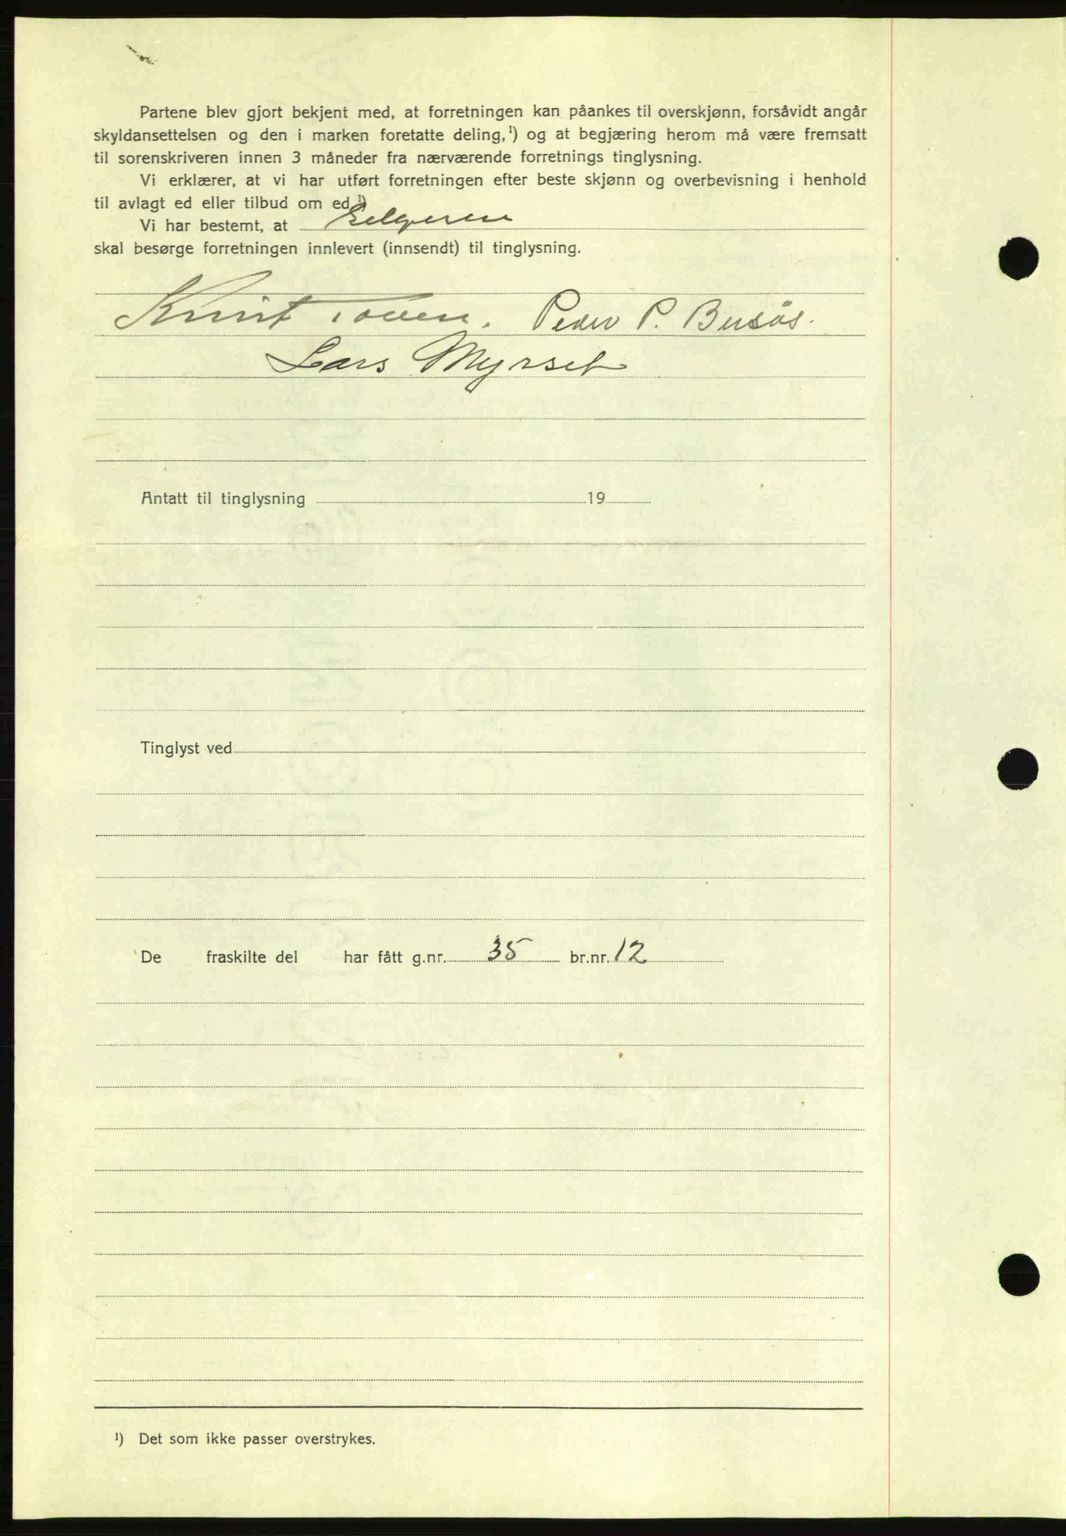 Partene blev gjort bekjent med, at forretningen kan påankes til overskjønn, forsåvidt angår
skyldansettelsen og den i marken foretatte deling,¹) og at begjæring herom må være fremsatt
til sorenskriveren innen 3 måneder fra nærværende forretnings tinglysning.
Vi erklærer, at vi har utført forretningen efter beste skjønn og overbevisning i henhold
til avlagt ed eller tilbud om ed.¹)
Vi har bestemt, at Selgeren
skal besørge forretningen innlevert (innsendt) til tinglysning.
Knut Toven. Peder P. Busås.
Lars Myrset
Antatt til tinglysning 19
Tinglyst ved
De fraskilte del har fått g.nr. 35 br.nr. 12
¹) Det som ikke passer overstrykes.